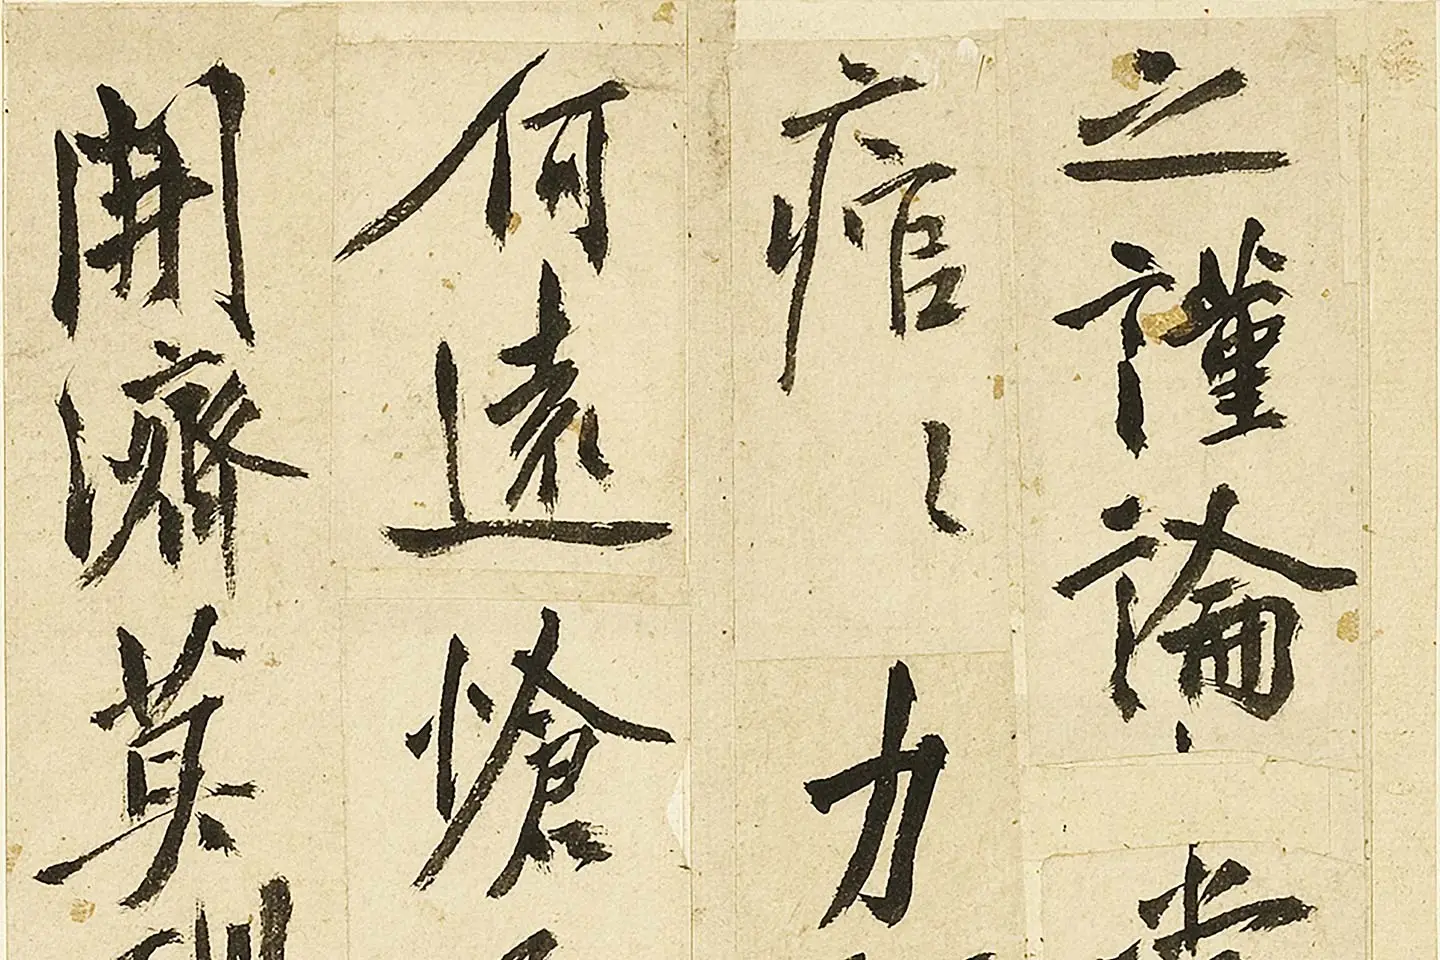 之謹論
痯々力
何遠愴
開濟莫